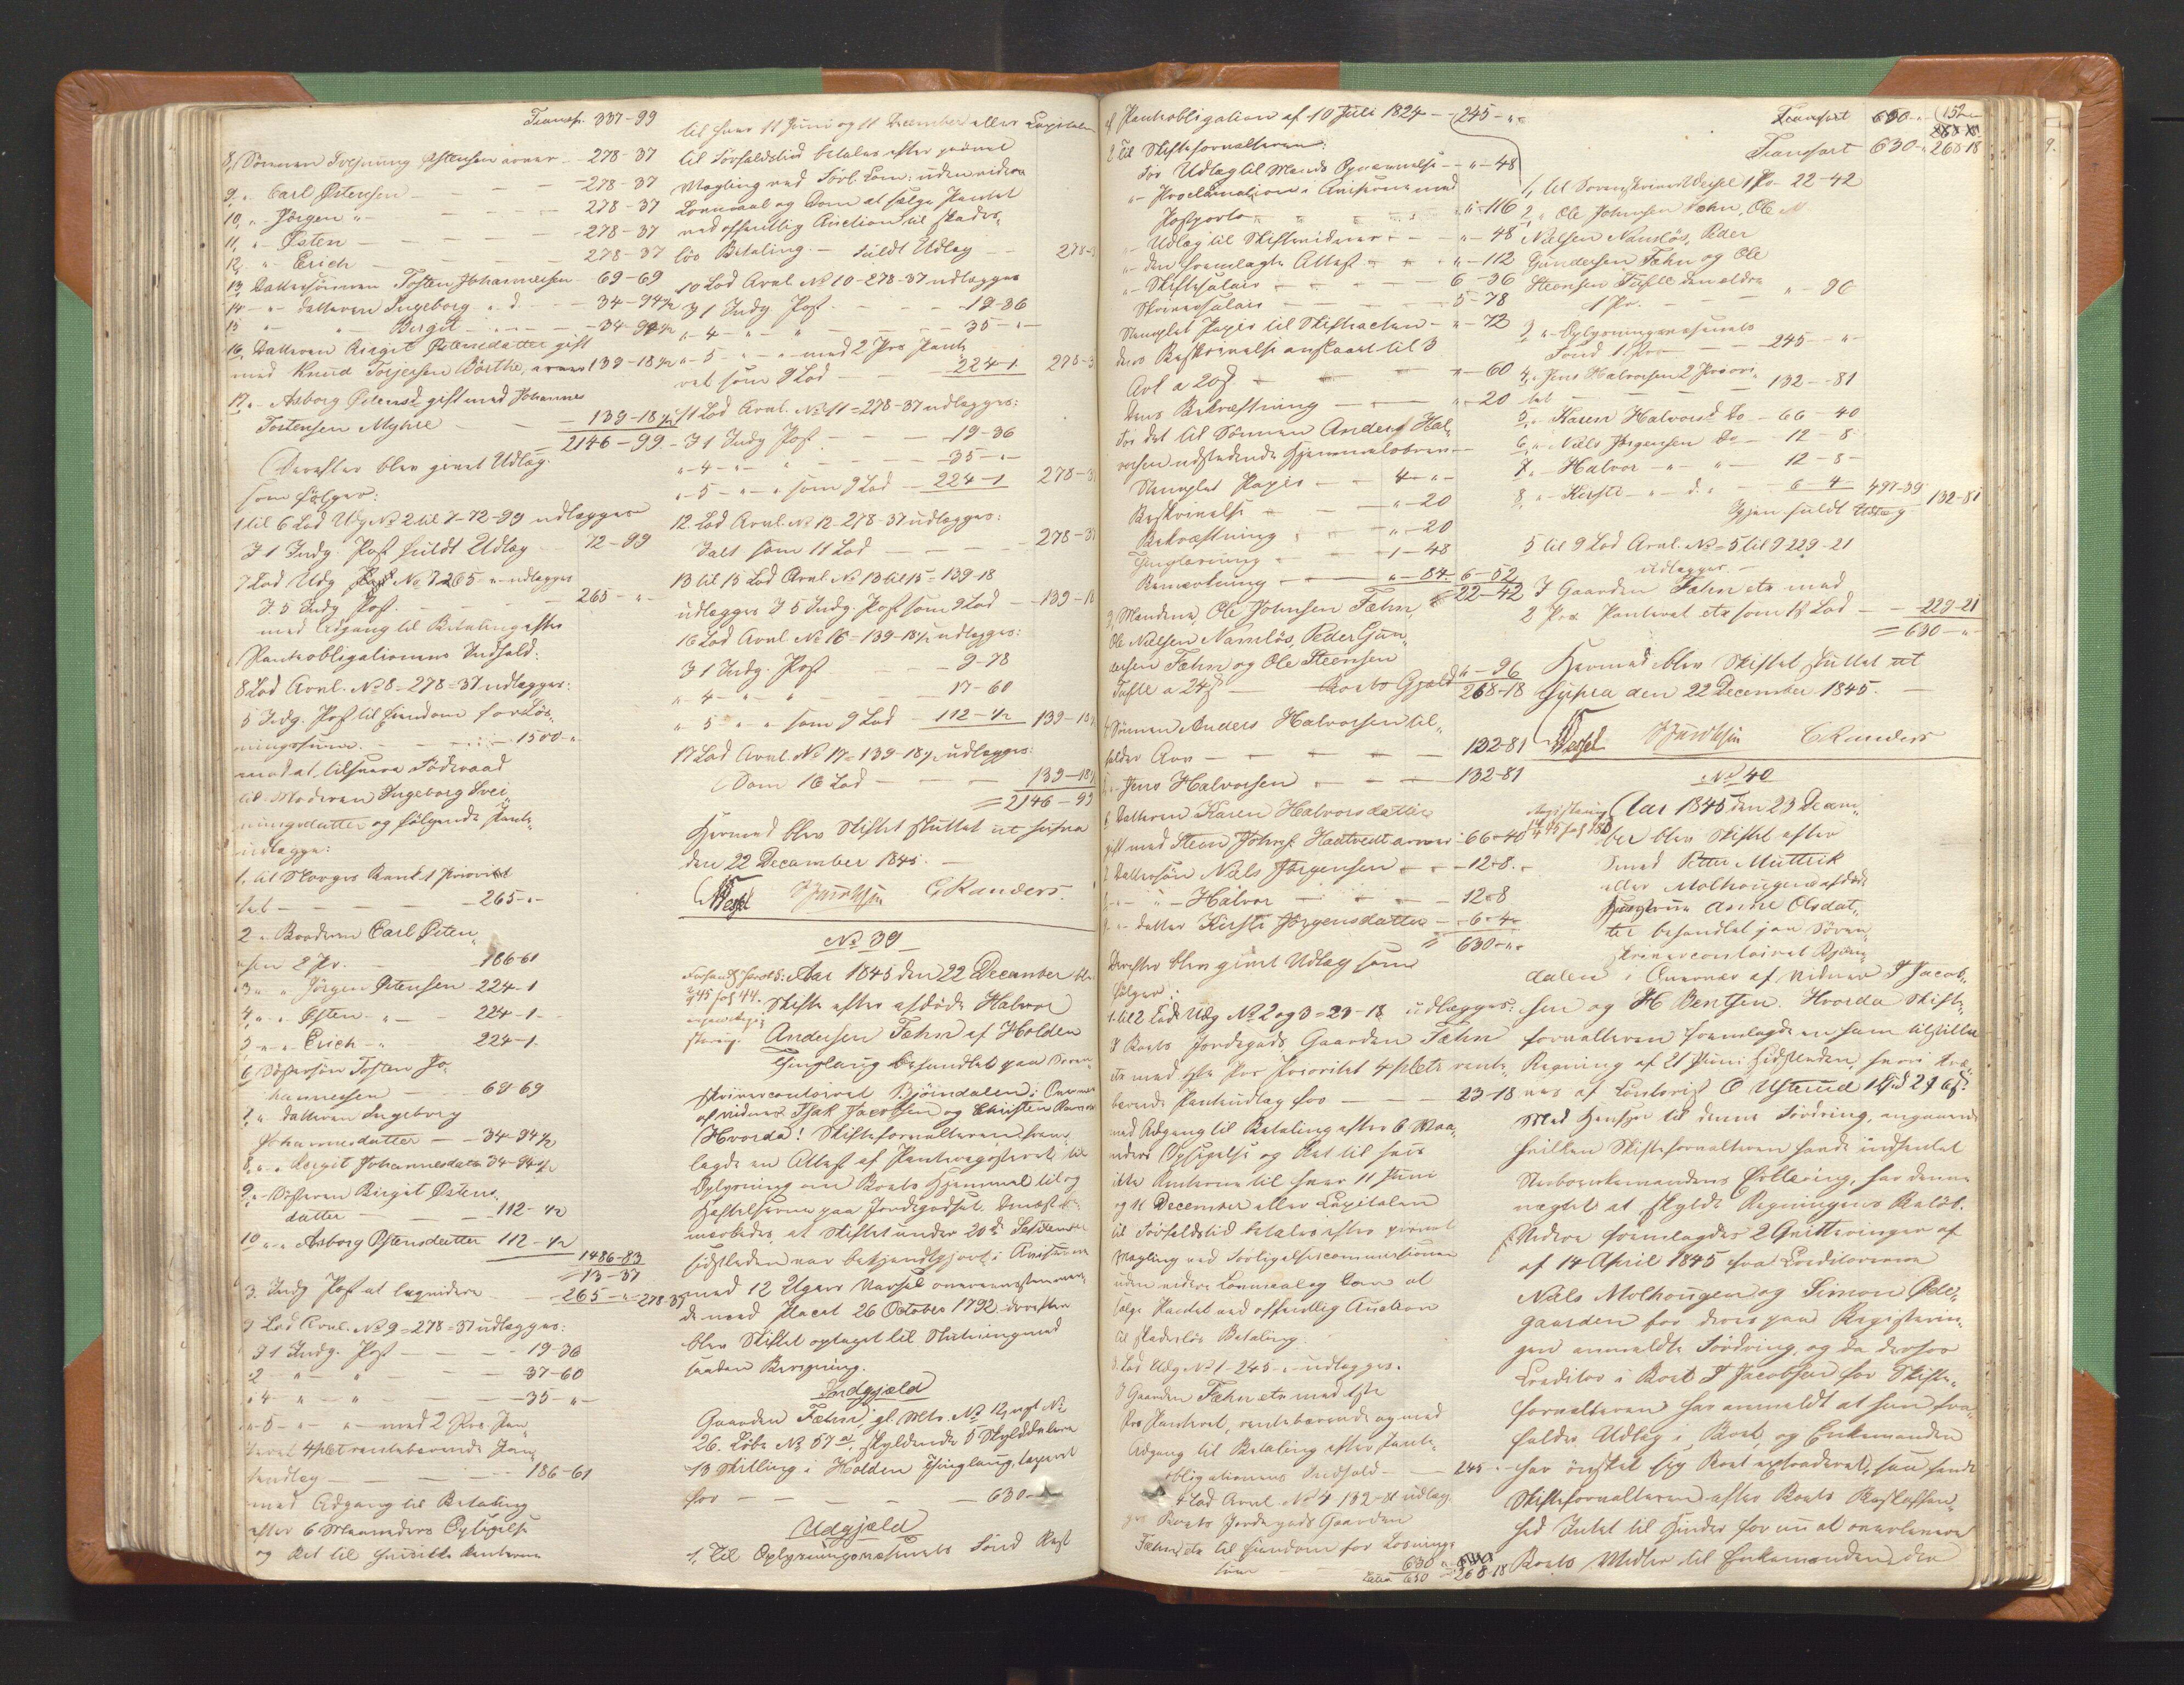 Transp. 337-99
8, Sønnen Svejnung Østensen arver - 278-37
9, " Carl Østensen - - - - 278-37
10, " Jørgen " - - - - 278-37
11, " Østen - - - - - 278-37
12, " Erich - - - - - 278-37
13, Dattersønnen Tosten Johannesen - 69-69
14 - " datteren Ingeborg " d. - - 34-94½
15 " - " Birgit - - - - 34-94½
16, Datteren Birgit Østensdatter gift
med Knud Torjersen Børthe, arver 139-18½
17, " Asborg Østensd. gift med Johannes
Tostensen Myhre - - 139-18½
2146-99.
Derefter blev givet Udlæg
som følger:
1 til 6 Lod Udg. No 2 til 7-72-99 udlægges
I 1 Indg. Post fuldt Udlæg - 72-99
7 Lod Udg. No 7 265 - " - udlægges
I 5 Indg. Post. - - - 265-"-
med Adgang til Betaling efter
Pantobligationens Indhold:
8 Lod Arvel. No 8 = 278-37 udlægges:
5 Indg. Post til Eiendom for Løs-
ningssum. - - - 1500-"
mod at tilsvare Føderaad
til Moderen Ingeborg Svei-
nungsdatter og følgende Pante-
udlægge:
1. til Norges Bank 1 Priorite
tet - - - - 265-"-
2 " Broderen Carl Østen-
sen 2 Pr. - - 186-61
3 " " Jørgen Østensen 224-1
4 " " Østen - " - 224-1-
5 " " Erich - " 224-1.
6, Søstersøn Tosten Jo-
hannesen - - 69-69
7, " datteren Ingeborg
Johannesdatter - - 34-94½
8, " " Birgit Johannesdatr 34-94½
9, " Søsteren Birgit Østens-
datter - - - 112-½
10 " " Asborg Østensdatter 112-½
1486-83
13-37
3. Indg. Post at liqvidere - 265-" - 278-37
9 Lod Arvel. No 9 = 278-37 udlægges:
I 1. Indg. Post - - - 19-36
" 2 " - " - - - - 37-60
" 4 " " " - - - 35-"-
" 5 - " - " - med 2 Pr. Pan-
teret 4 pCt rentebærende Pan-
teudlæg - - - - 186-61
med Adgang til Betaling
efter 6 Maaneders Opsigelse
og Ret til Renterne
til hver 11 Juni og 11 December eller Capitalen
til Forfaldstid betales efter prøvet
Mægling ved Forl. Com: uden videre
Lovmaal og Dom at sælge Pantet
ved offentlig Auction til skades-
løs Betaling. - fuldt Udlæg - 278-3
10 Lod Arvel. No 10 - 278-37 udlægges
I 1 Indg. Post - - - 19-36
" 4 - " - " - - - 35-"-
" 5 - " - " med 2 Pr. Pante-
ret som 9 Lod - - 224-1 278-3
11 Lod Arvel. No 11 = 278-37 udlægges:
I 1 Indg. Post - - - 19-36
" 4 - " - " - - - 35-"-
" 5 - " - " som 9 Lod - 224-1 278-3
12 Lod Arvel. No 12 - 278-37 udlægges:
Salt som 11 Lod - - - - 278-3
13 til 15 Lod Arvel. No 13 til 15 = 139-18
udlægges I 5 Indg. Post som 9 Lod - 139-18
16 Lod Arvel. No 16 = 139-18½ udlægges:
I 1 Indg. Post - - 9-78
" 4 - " " - - - 17-60
" 5 " " " som 9 Lod - 112-½ 139-18
17 Lod Arvel. No 17 = 139-18½ udlægges:
Som 16 Lod - - - 139-18½
= 2146-99
Hermed blev Skiftet sluttet ut supra
den 22 December 1845. -
Wessel IJacobsen CRanders.
No 39
Aar 1845 den 22 December blev
Skifte efter afdøde Halvor
Andersen Fæhn af Holden
Thinglaug behandlet paa Soren-
skrivercontoiret Bjørndalen i Overvær
af vidner Isak Jacobsen og Christen Randers
Hvorda! Skifteforvalteren frem-
lagde en Attest af Panteregisteret til
Oplysning om Boets Hjemmel til og
Heftelserne paa Jordegodset. Dernæst be-
mærkedes, at Skiftet under 20de September
sidstleden var bekjendtgjort i Aviserne
med 12 Ugers Varsel overeensstemmen-
de med Placat 26 October 1792, derefter
blev Skiftet optaget til Slutning med
saadan Beregning.
Indgjæld
Gaarden Fæhn, gl. Mtr. No 12, nyt No
26. Løbe No 57 a, skyldende 5 Skylddalere
13 skilling i Holden Thinglaug, taxeret
for - - - - - 630-"-
Udgjæld
1, Til Oplysningsvæsenets Fond Rest
af Pantobligation af 10 Juli 1824 - - 245-"-
2 Til Skifteforvalteren:
for Udlæg til Mands Opnævnelse - " - 48
" - Proclamation i Aviserne med
Postporto - - - - " - 116
- Udlæg til Skiftevidner - - " - 48
- den fremlagte Attest - - " - 112
" - Skiftesalair - - - - 6-36
Skriversalair - - - - 5-78
Stemplet Papir til Skifteacten - " - 72
dens Beskrivelse anslaaet til 3
Ark a 20 s. - - - " - 60
dens Bekræftning - - - " - 20
for det til Sønnen Anders Hal-
vorsen udstedende Hjemmelsbrev -
Stemplet Papir - - 4-"-
Beskrivelse - - - " - 20
Bekræftning - - - " - 20
Thinglæsning - - - 1-48
Bemærkning - - - " - 84- 6-52
22-42
3, Mændene, Ole Johnsen Fæhn,
Ole Nielsen Namløs, Peder Gun-
dersen Fæhn og Ole Steensen
Tufte a 24 s. - Boets Gjæld " - 96
268-18
4 Sønnen Anders Halvorsen til-
falder Arv - - - - 132-81
5 " Jens Halvorsen - - - 132-81
6 Datteren Karen Halvorsdatter
gift med Steen Johnss. Hadtvedt arver - 66-40
7 Dattersøn Nils Jørgensen - - 12-8-
8 - " - Halvor - - - - 12-8
9 - " - datter Kirsti Jørgensdatter - - 6-4
= 630-"-
Derefter blev givet Udlæg som
følger:
1 til 2 Lod Udg. No 2 og 3 = 23-18 udlægges:
I Boets Jordegods Gaarden Fæhn
etc med 2de Pr. Prioritet 4 pCt rente-
bærende Panteudlæg for - - - 23-18
med Adgang til Betaling efter 6 Maa-
neders Opsigelse og Ret til hvis
ikke Renterne til hver 11 Juni
og 11 December eller Capitalen
til Forfaldstid betales efter prøvet
Mægling ved Forligelsescommissionen
uden videre Lovmaal og Dom at
sælge Pantet ved offentlig Auction
til skadesløs Betaling.
3 Lod Udg. No 1 - 245 - " udlægges.
I Gaarden Fæhn etc med 1ste
Pr. Panteret, rentebærende og med
Adgang til Betaling efter Pante-
obligationens Indhold - - 245-
4 Lod Arvel. No 4 - 132-81 udlæg-
ges Boets Jordegods Gaarden
Fæhn etc til Eiendom for Løsnings-
sum - - 630
Latus 630 - 268-18
Transport 630-"- 152
Transport 630-" 268-18
1, til Sorenskriver Wessel 1 Pr. 22-42
2, " Ole Johnsen Fæhn, Ole
Nielsen Namløs, Peder
Gundersen Fæhn og Ole
Steensen Tufte den ældre
1 Pr. - - - - " - 96
3, " Oplysningsvæsenets
Fond 1 Pr. - - - 245-"-
4, " Jens Halvorsen 2 Priori-
tet - - - 132-81
5, " Karen Halvorsd. Do - 66-40
6, " Niels Jørgensen Do - 12-8
7, " Halvor - " - " - 12-8-
8, " Kirsti - " - d. " - 6-4- 497-39
Igjen fuldt Udlæg 132-81
5 til 9 Lod Arvel. No = 5 til 9 229-21
udlægges. -
I Gaarden Fæhn etc med
2 Pr. Panteret etc som 1ste Lod - - 229-21
= 630-"-
Hermed blev Skiftet sluttet ut
supra den 22 December 1845.
Wessel IJacobsen CRanders
No 40
Aar 1845 den 23 Decem-
ber blev Skiftet efter
Smed Petter
eller Molhougens afdøde
Hustrue Anne Olsdat-
ter behandlet paa Soren-
skrivercontoiret Bjørn-
dalen i Overvær af vidner I Jacob-
sen og H Bentsen. Hvorda Skifte-
forvalteren fremlagde en ham tilstillet
Regning af 21 Juni sidstleden, hvori kræ-
ves af Contorist O Ustrud
Med Hensyn til denne Fordring, angaaende
hvilken Skifteforvalteren havde indhentet
Enkemandens Erklæring, har denne
nægtet at skylde Regningens Beløb.
Videre fremlagdes 2 Qvitteringer af
af 14 April 1845 fra Creditorerne
Niels Molhougen og Simon Øde-
gaarden for deres paa Registerin-
gen anmeldte Fordring, og da desfor
Creditor i Boet I Jacobsen for Skifte-
forvalteren har anmeldt at han fra-
falder Udlæg i Boet, og Enkemanden
har ønsket sig Boet extraderet, saa fandt
Skifteforvalteren efter Boets Beskaffen-
hed Intet til Hinder for nu at overlevere
Boets Midler til Enkemanden, der